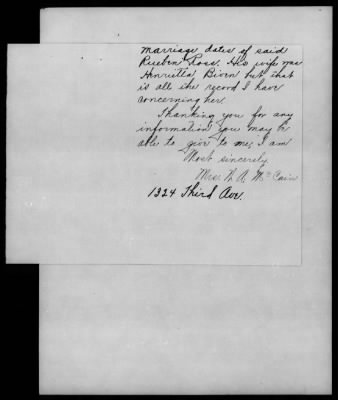 marriage dates of said
Rueben Ross. His wife was
Henrietta Biven but that
is all the record I have
concerning her.
Thanking you for any
information you may be
able to give to me, I am
Most sincerely,
Mrs. W. A. McCain
1324 Third Ave.